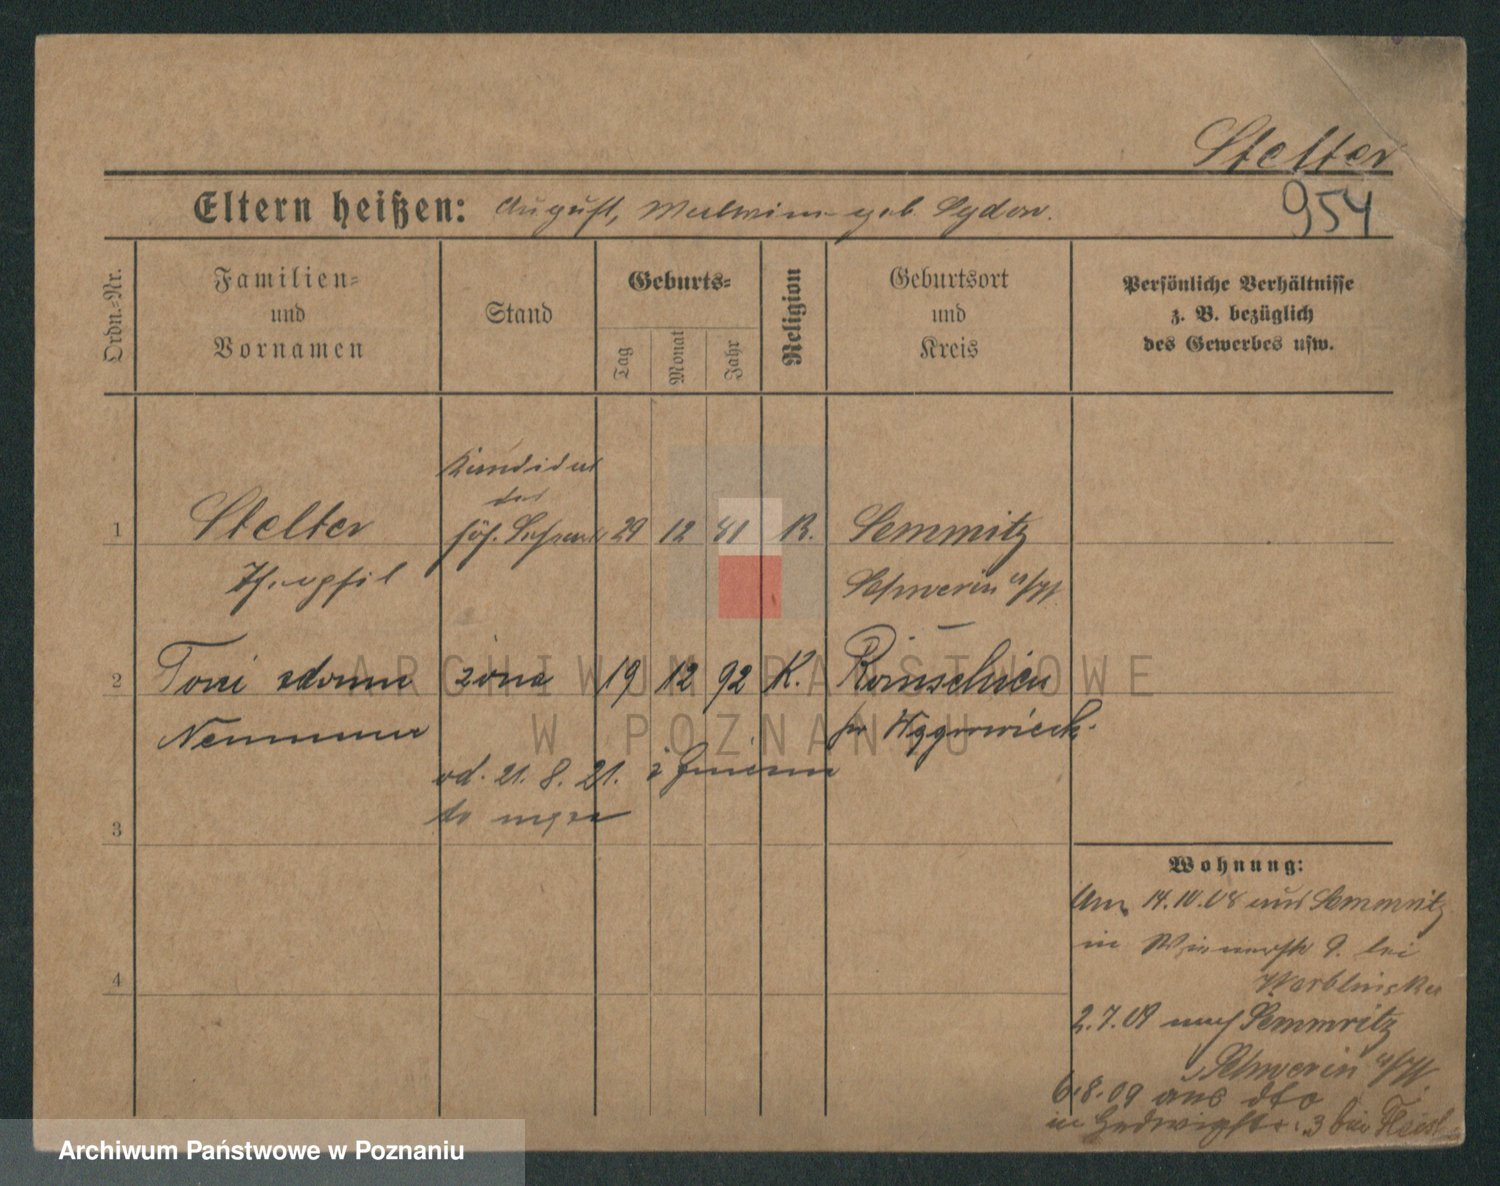 Stelter
954
Eltern heißen: August, geb. Sydow.
Ordn.-Nr.
Familien-
und
Vornamen
Stand
Geburts-
Tag
Monat
Jahr
Religion
Geburtsort
und
Kreis
Persönliche Verhältnisse
z. B. bezüglich
des Gewerbes usw.
Kandidat
des
1 Stelter höh. 29 12 81 K. Semmritz
Theophil Schwerin a/W.
2 Toni żona 19 12 92 K.
od. 21. 8. 21.
3
4
Wohnung:
Am 14.10.08 aus Semmritz
in Wienerstr 9. bei
2.7.09 nach Semmritz
Schwerin a/W.
6.8.09 aus dto
in Hedwigstr. 3 bei
ARCHIWUM PAŃSTWOWE
W POZNANIU
Archiwum Państwowe w Poznaniu